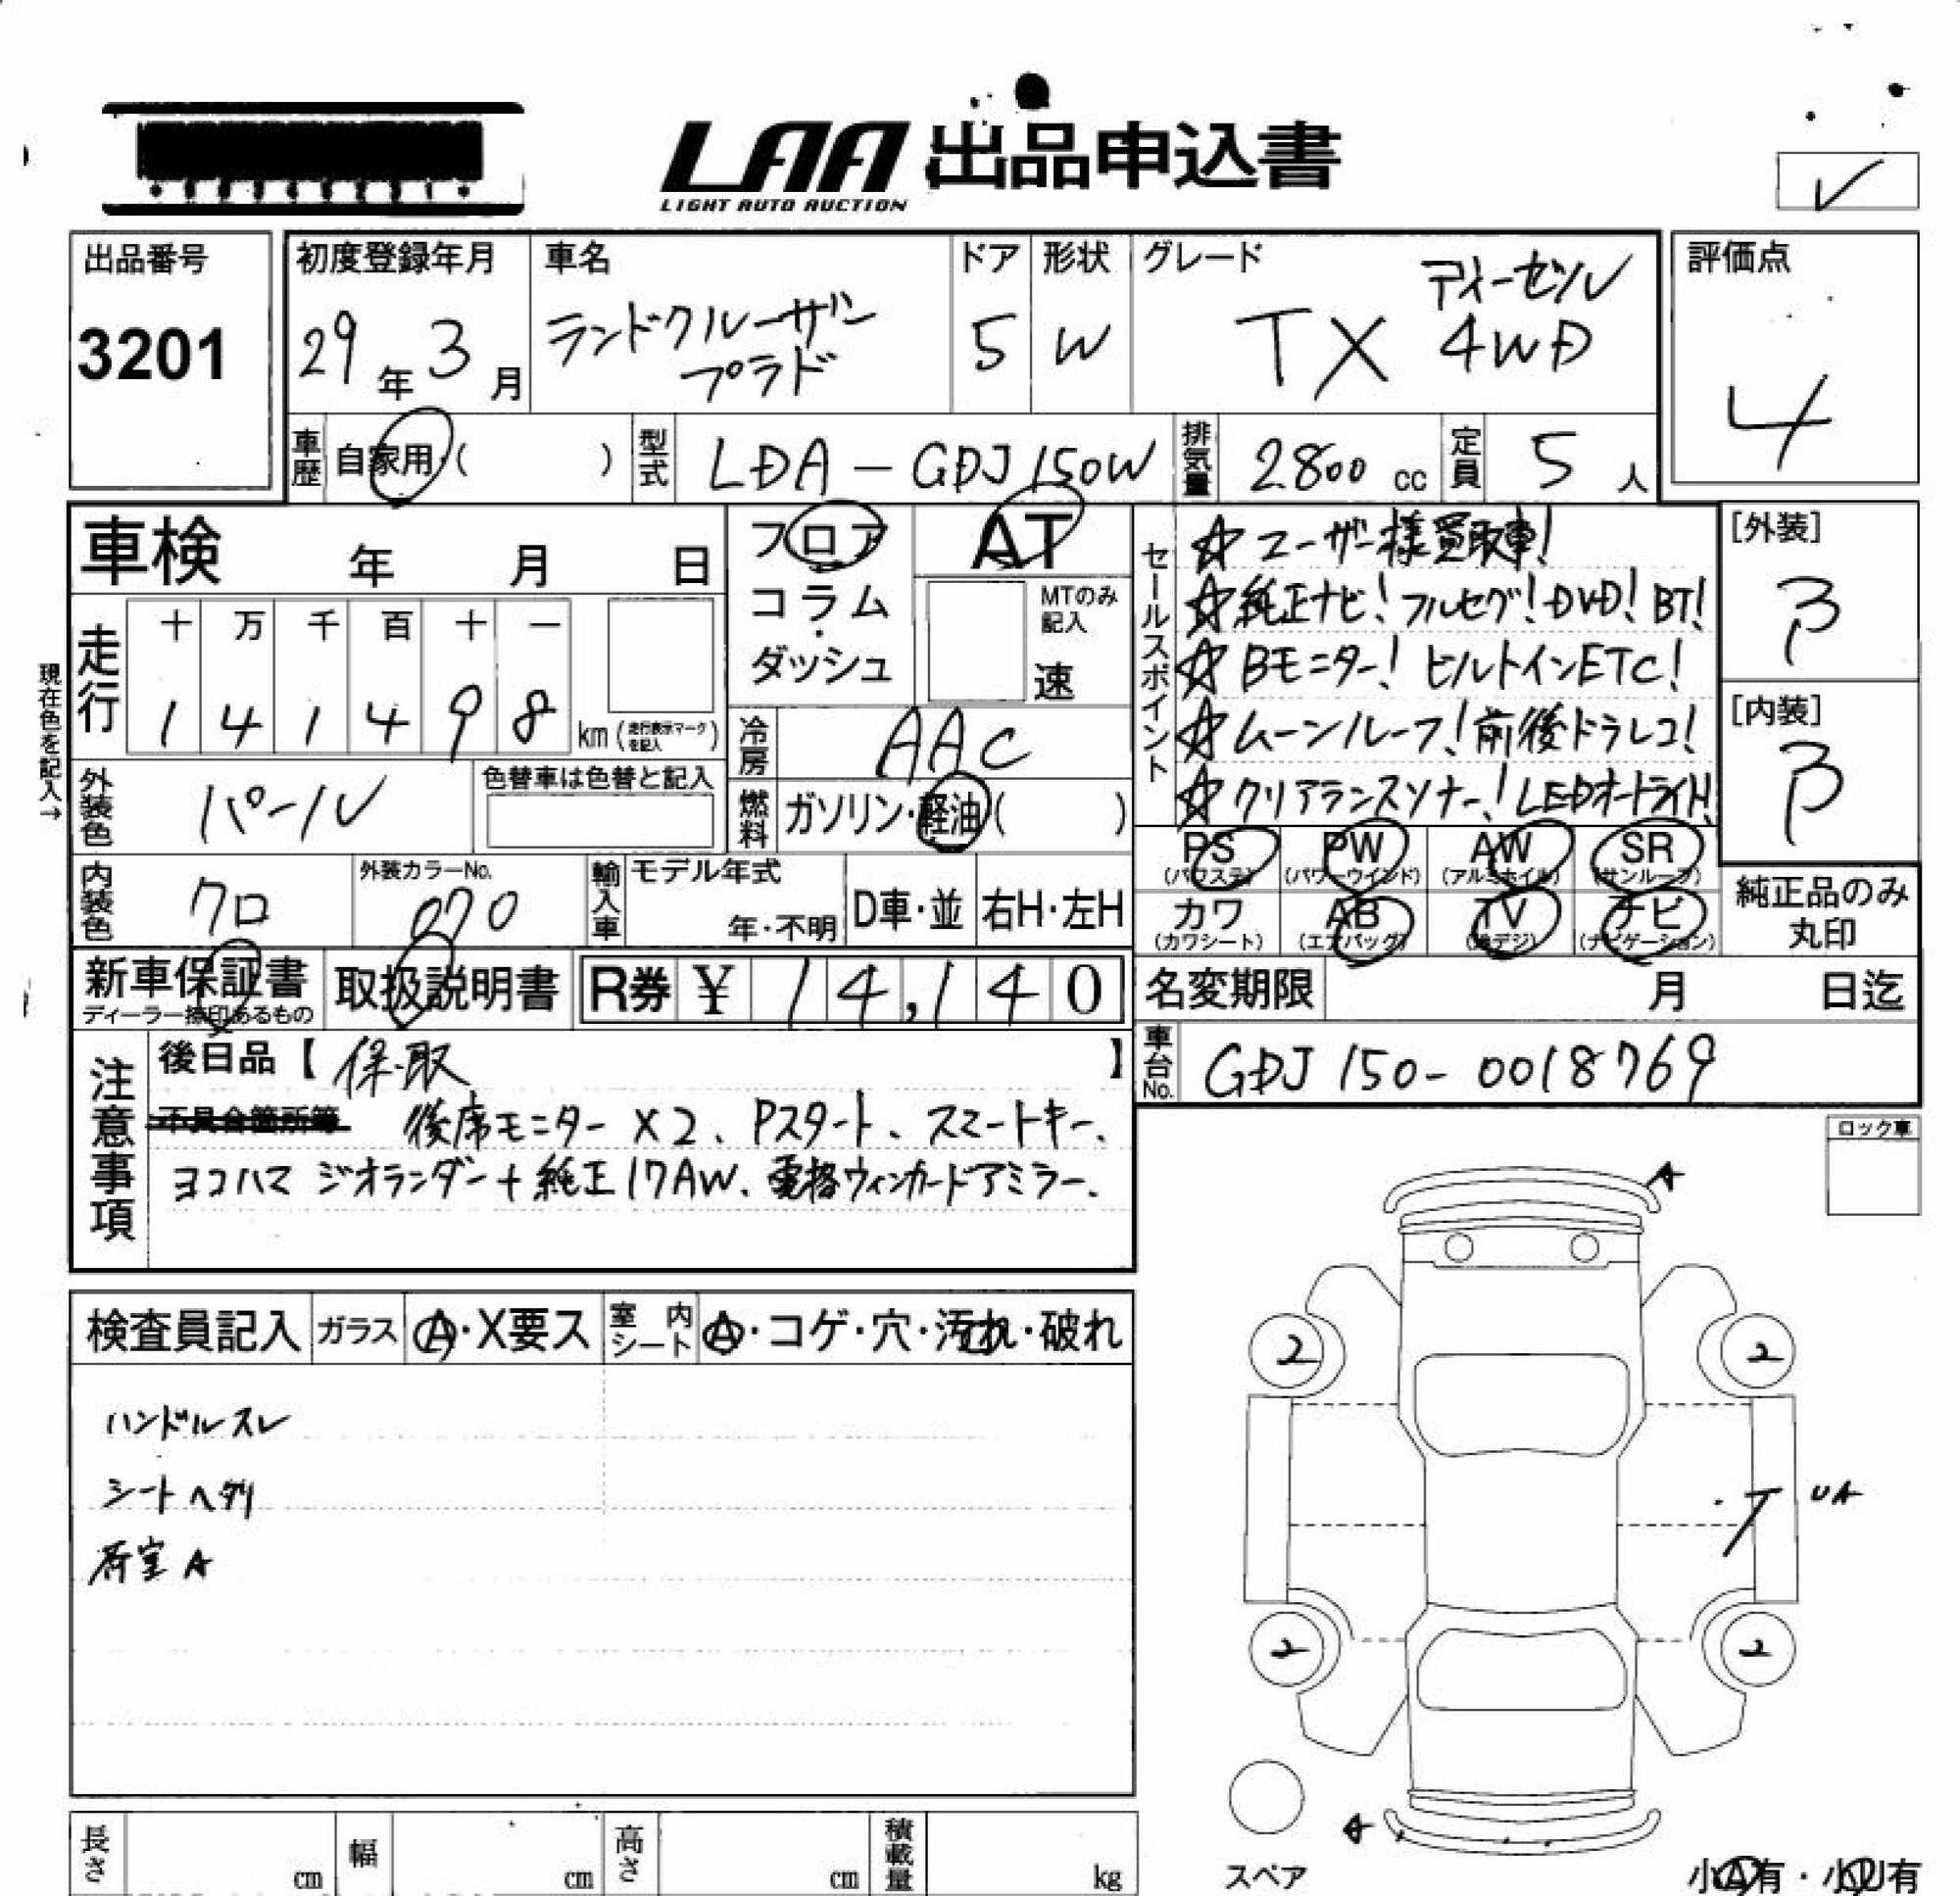 LAA 出品申込書
LIGHT AUTO AUCTION
出品番号
3201
初度登録年月
29年3月
車名
ランドクルーザー
プラド
ドア
5
形状
W
グレード
ディーゼル
TX 4WD
評価点
4
車歴 自家用・( )
型式 LDA-GDJ150W
排気量 2800 cc
定員 5 人
車検 年 月 日
走行
十 万 千 百 十 一
1 4 1 4 9 8 km (走行表示マークを記入)
現在色を記入→
外装色 パール
色替車は色替と記入
内装色 クロ
外装カラーNo. 070
フロア
コラム
・
ダッシュ
AT
MTのみ
記入
速
冷房 AAC
燃料 ガソリン・軽油( )
輸入車 モデル年式
年・不明
D車・並 右H・左H
セールスポイント
☆ユーザー様買取車!
☆純正ナビ!フルセグ!DVD!BT!
☆Bモニター!ビルトインETC!
☆ムーンルーフ!前後ドラレコ!
☆クリアランスソナー!LEDオートライト!
[外装]
B
[内装]
B
PS
(パワステ)
PW
(パワーウインド)
AW
(アルミホイル)
SR
(サンルーフ)
カワ
(カワシート)
AB
(エアバッグ)
TV
(地デジ)
ナビ
(ナビゲーション)
純正品のみ
丸印
新車保証書
ディーラー捺印あるもの
取扱説明書
R券 ¥ 14,140
名変期限 月 日迄
車台No. GDJ150-0018769
注意事項
後日品【保.取】
不具合箇所等 後席モニター×2、Pスタート、スマートキー、
ヨコハマ ジオランダー+純正17AW、電格ウィンカードアミラー、
ロック車
検査員記入 ガラス A・X要ス 室内シート A・コゲ・穴・汚れ・破れ
ハンドルスレ
シートヘタリ
荷室A
A
2 2
UA
2 2
A
スペア
小A有・小U有
長さ cm 幅 cm 高さ cm 積載量 kg